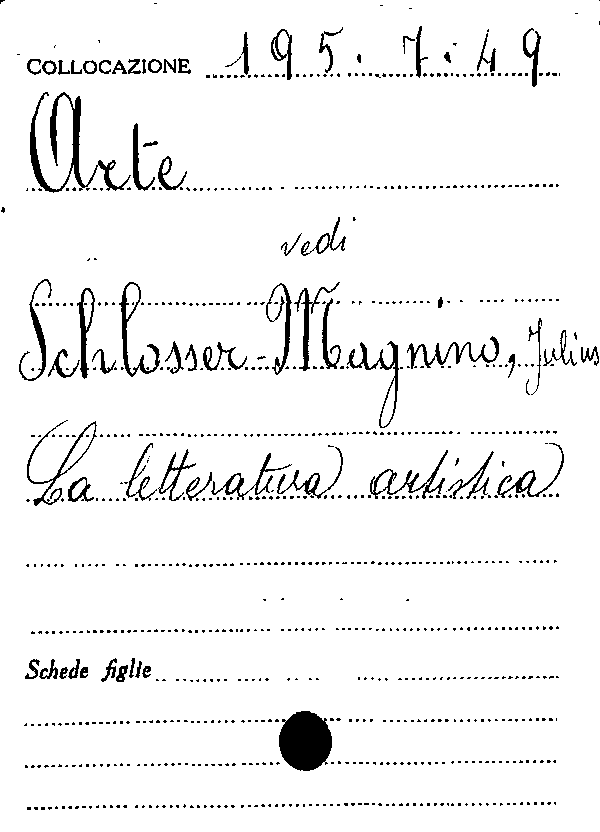 COLLOCAZIONE 195.7.49
Arte
vedi
Schlosser-Magnino, Julius
La letteratura artistica
Schede figlie